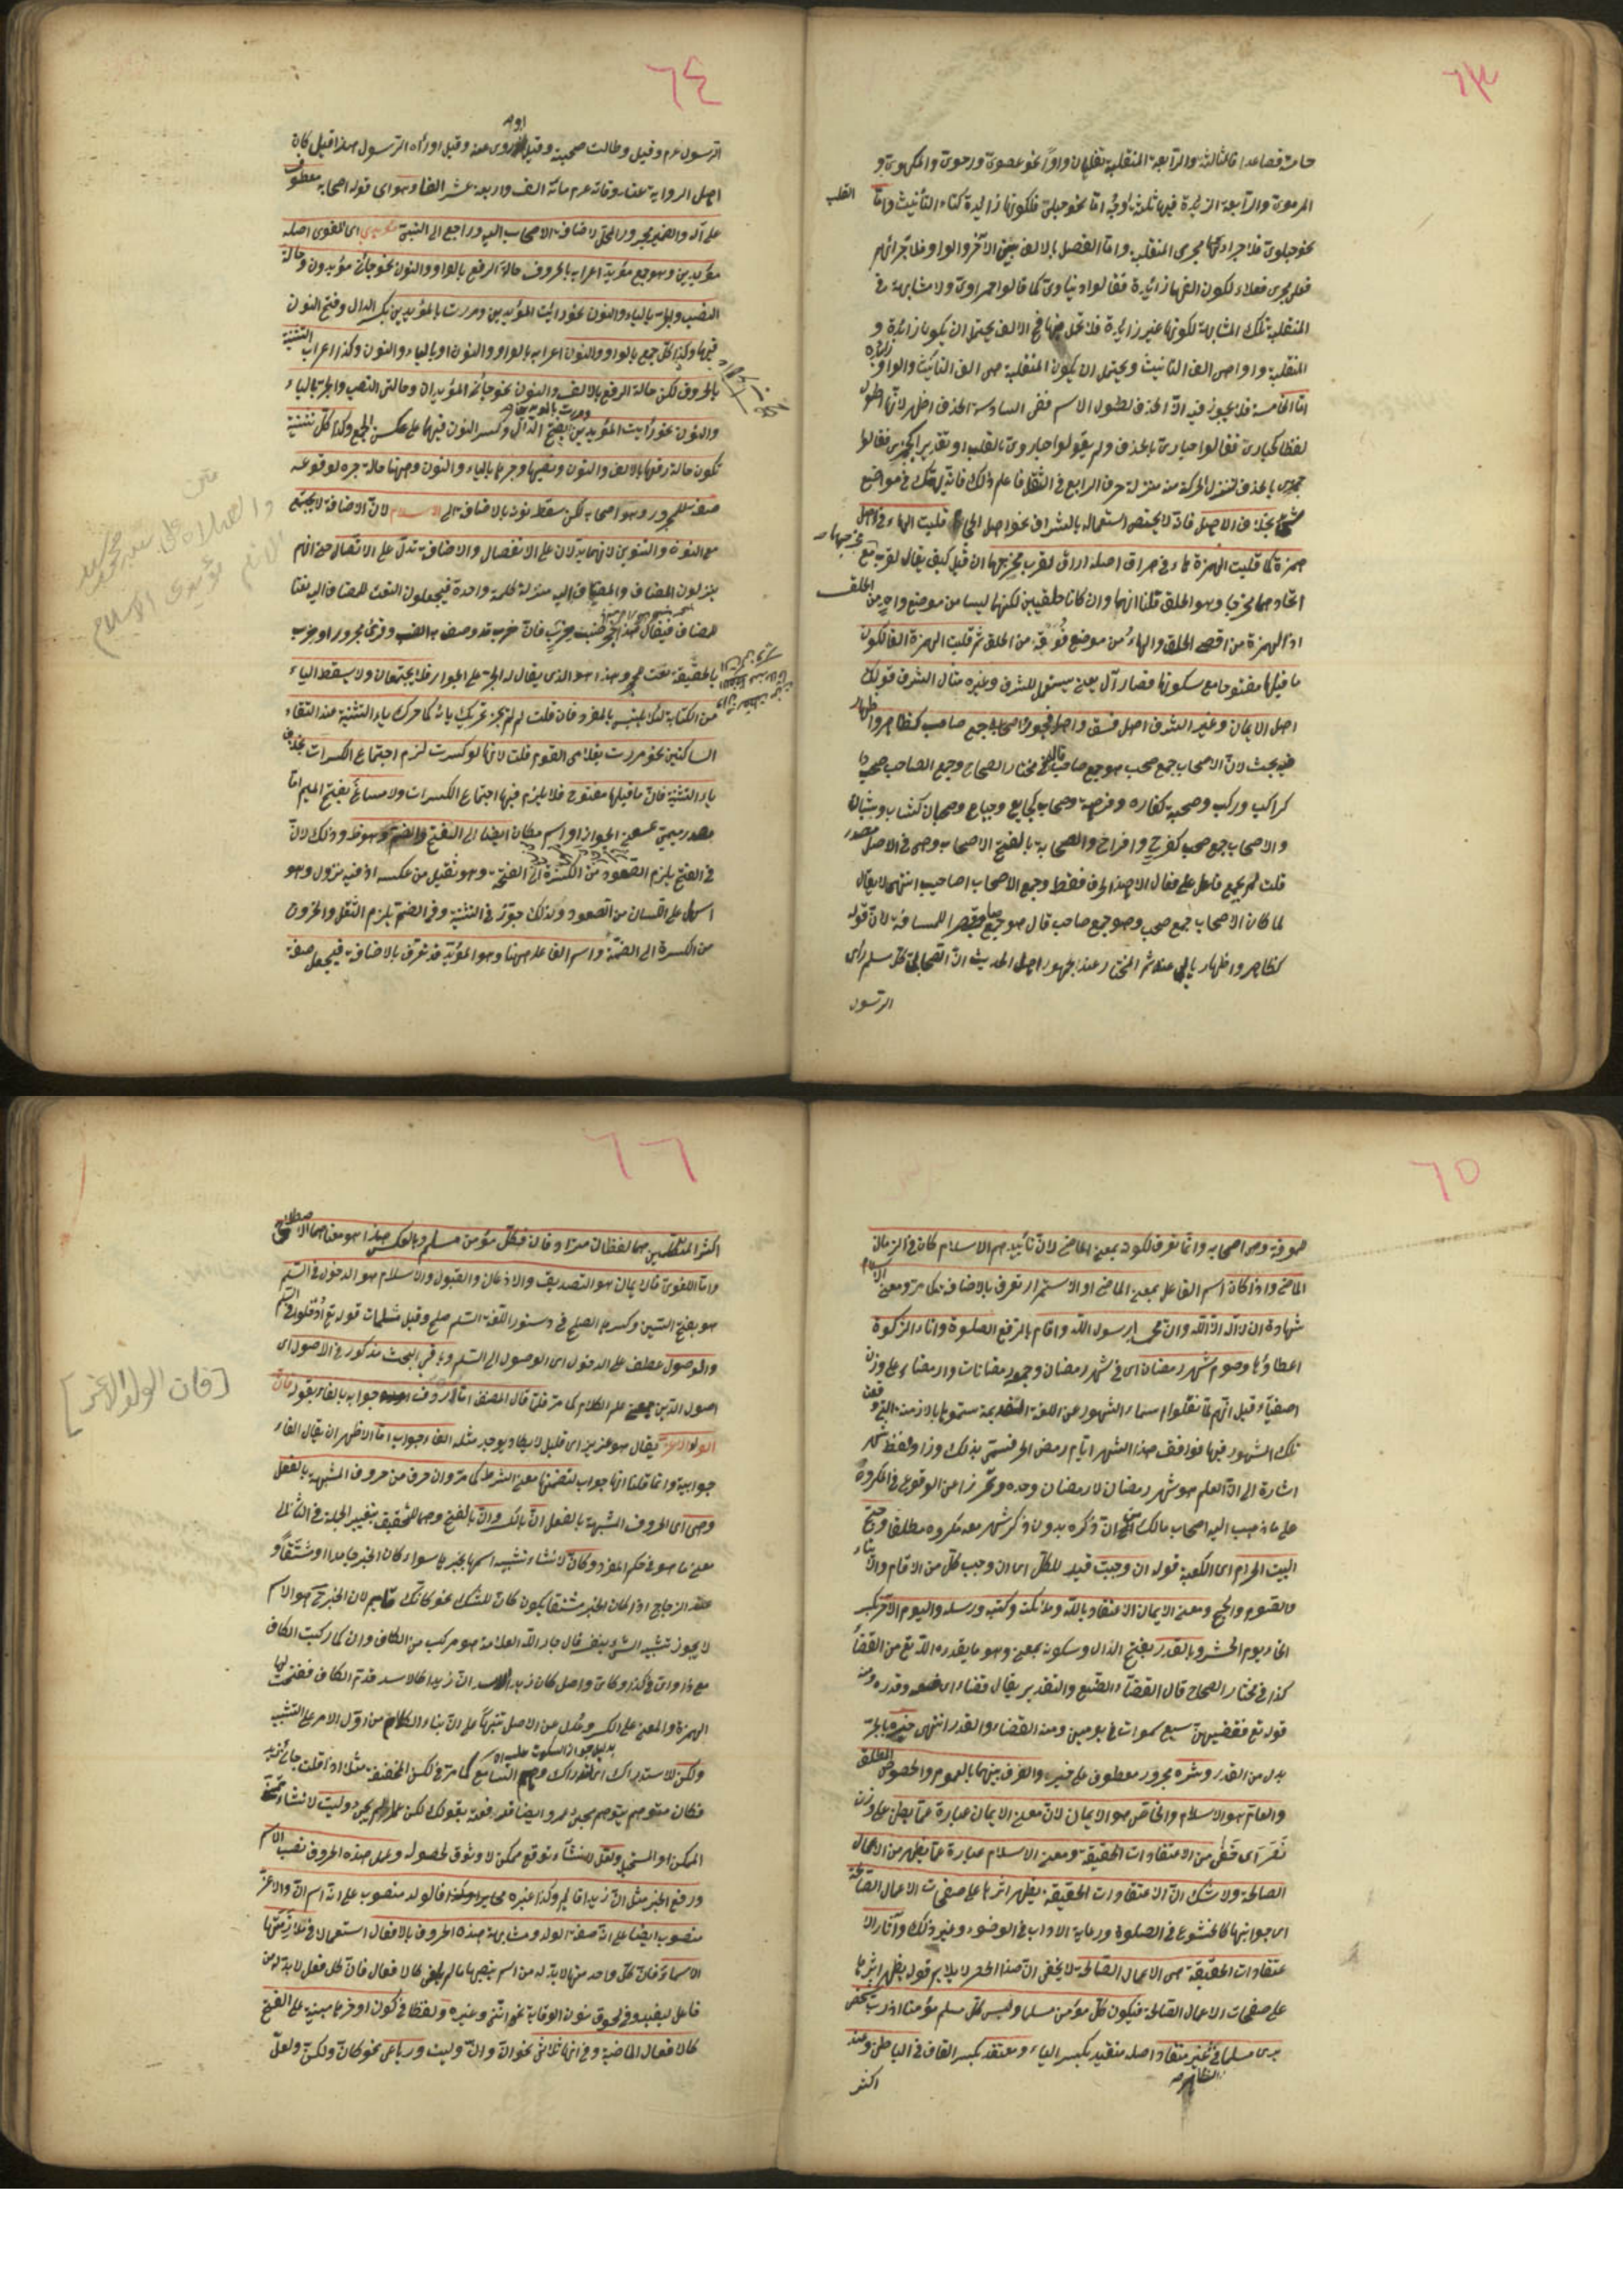 ٦٣
فصاعدا فالثالثة والرابعة المنقلبة تقلبان واوا نحو عصوى ورحوى والملهوى و
المرموى والرابعة الزائدة فيها ثلثة اوجه اما نحو حبلى فلكونها زائدة كتاء التأنيث واما
القلب
نحو حبلوى فلاجرائها مجرى المنقلبة واما الفصل بالالف بين الآخر والواو فلاجرائهم
فعلى مجرى فعلاء لكون الفها زائدة فقالوا دنياوى كما قالوا حمراوى ولا مشابهة فى
المنقلبة تلك المشابهة لكونها غير زائدة
المنقلبة واو اصلى الف التأنيث ويحتمل ان يكون المنقلبة هى الف التأنيث والواو زائدة
اما الخامسة فلا يجوز فيه الا الحذف لطول الاسم ففى السادسة الحذف اظهر لانها اطول
لفظا كحبارى فقالوا حبارى بالحذف ولم يقولوا حباروى بالقلب
بالحذف لتنزل الحركة منه منزلة حرف الرابع فى الثقل فاعلم ذلك فانه ينفعك فى مواضع
بخلاف الاصل فانه لا يختص استعماله بالشراف نحو اصل قلبت الهاء فى اهل
همزة كما قلبت الهمزة هاء فى هراق اصله اراق لقرب مخرجهما ان قيل كيف يقال لقرب مع
اتحادهما مخرجا وهو الحلق قلنا انهما وان كانا حلقيين لكنهما ليسا من موضع واحد من الحلق
اذ الهمزة من اقصى الحلق والهاء من موضع فوقه من الحلق ثم قلبت الهمزة الفا لكون
ما قبلها مفتوحا مع سكونها فصار آل يعنى يستعمل للشرف وغيره مثال الشرف قولك
اهل الايمان وغير الشرف اهل فسق واهل فجور واصحابه جمع صاحب كطاهر واطهار
فيه بحث لان الاصحاب جمع صحب هو جمع صاحب قال فى مختار الصحاح وجمع الصاحب صحب
كراكب وركب وصحبة كفاره وفرهة وصحاب كجايع وجياع وصحبان كشاب وشبان
والاصحاب جمع صحب كفرخ وافراخ والصحابة بالفتح الاصحاب وهى فى الاصل مصدر
قلت لم يجمع فاعل على فعال الا هذا الحرف فقط وجمع الاصحاب اصاحيب انتهى لا يقال
لما كان الاصحاب جمع صحب وهو جمع صاحب قال هو جمع صاحب قصرا للمسافة لان قوله
كطاهر واطهار ثم المختار عند جمهور اهل الحديث ان الصحابى كل مسلم رأى
الرسول
٦٤
الرسول عم وقيل وطالت صحبته وقيل وروى عنه وقيل او رآه الرسول هذا قيل كان
اهل الرواية عند وفاته عم مائة الف واربعة عشر الفا وهو اى قوله اصحابه معطوف
على آله والضمير مجرور المحل لاضافة الاصحاب اليه وراجع الى النبى مؤيدى اى المقوى اصله
مؤيدين وهو جمع مؤيد اعرابه بالحروف حالة الرفع بالواو والنون نحو جائنى مؤيدون وحالة
النصب والجر بالياء والنون نحو رأيت المؤيدين ومررت بالمؤيدين بكسر الدال وفتح النون
فيهما وكذا كل جمع بالواو والنون اعرابه بالواو والنون او بالياء والنون وكذا اعراب التثنية
بالحروف لكن حالة الرفع بالالف والنون نحو جائنى المؤيدان وحالتى النصب والجر بالياء
والنون نحو رأيت المؤيدين بفتح الدال وكسر النون فيهما على عكس الجمع وكذا كل تثنية
تكون حالة رفعها بالالف والنون ونصبها وجرها بالياء والنون وههنا حالة جره لوقوعه
صفة للمجرور وهو اصحابه لكن سقط نونه بالاضافة الى الاسلام لان الاضافة لا تجتمع
مع النون والتنوين لانهما يدلان على الانفصال والاضافة تدل على الاتصال حتى انهم
ينزلون المضاف والمضاف اليه منزلة كلمة واحدة فيجعلون النعت للمضاف اليه نعتا
للمضاف فيقال هذا جحر ضب خرب فان خرب قد وصف به الضب وقرئ مجرورا وخرب
بالحقيقة نعت جحر وهذا هو الذى يقال له الجر على الجوار فلا يجتمعان ولا يسقط الياء
من الكتابة لئلا يلتبس بالمفرد فان قلت لم لم يجز تحريك يائه كما حرك ياء التثنية عند التقاء
الساكنين نحو مررت بغلامى القوم قلت لانها لو كسرت لزم اجتماع الكسرات بخلاف
ياء التثنية فان ما قبلها مفتوح فلا يلزم فيها اجتماع الكسرات ولا مساغ بفتح الميم اما
مصدر ميمى بمعنى الجواز او اسم مكان ايضا الى الفتح والضم وهو ظ وذلك لان
فى الفتح يلزم الصعود من الكسرة الى الفتحة وهو ثقيل من عكسه اذ فيه نزول وهو
اسهل على الانسان من الصعود ولذلك جوز فى التثنية وفى الضم يلزم الثقل والخروج
من الكسرة الى الضمة واسم الفاعل ههنا وهو المؤيد قد تعرف بالاضافة فيجعل صفة
متن
والصلاة على سيد محمد سيد
الانام مؤيدى الاسلام
٦٥
للمعرفة وهى اصحابه وانما تعرف لكونه بمعنى الماضى لان تأييدهم الاسلام كان فى الزمان
الماضى واذا كان اسم الفاعل بمعنى الماضى او الاستمرار تعرف بالاضافة كما مر ومعنى الاسلام
شهادة ان لا اله الا الله وان محمدا رسول الله واقام بالرفع الصلوة وايتاء الزكوة
اعطاؤها وصوم شهر رمضان اى فى شهر رمضان وجمعه رمضانات وارمضاء على وزن
اصفياء قيل انهم لما نقلوا اسماء الشهور عن اللغة القديمة سموها بالازمنة التى وقعت
تلك الشهور فيها فوافق هذا الشهر ايام رمض الحر فسمى بذلك وزاد لفظ شهر
اشارة الى ان العلم هو شهر رمضان لا رمضان وحده وتحرزا عن الوقوع فى المكروه
على ما ذهب اليه اصحاب مالك ان ذكره بدون ذكر شهر معه مكروه مطلقا وحج
البيت الحرام اى الكعبة قوله ان وجبت قيد للكل اى ان وجب كل من الاقام والايتاء
والصوم والحج ومعنى الايمان الاعتقاد بالله وملائكته وكتبه ورسله واليوم الآخر
اى يوم الحشر وبالقدر بفتح الدال وسكونه بمعنى وهو ما يقدره الله تع من القضاء
كذا فى مختار الصحاح قال القضاء الصنع والتقدير يقال قضاه اى صنعه وقدره ومنه
قوله تع فقضيهن سبع سموات فى يومين ومنه القضاء والقدر انتهى خيره بالجر
بدل من القدر وشره مجرور معطوف على خيره والفرق بينهما بالعموم والخصوص المطلق
والعام هو الاسلام والخاص هو الايمان لان معنى الايمان عبارة عما بطن على وزن
نصر اى خفى من الاعتقادات الحقيقة ومعنى الاسلام عبارة عما يظهر من الاعمال
الصالحة ولا شك ان الاعتقادات الحقيقة يظهر اثرها على صفحات الاعمال الصالحة
اى جوانبها كالخشوع فى الصلوة ورعاية الاداب فى الوضوء وغير ذلك وآثار الا
عتقادات الحقيقة هى الاعمال الصالحة لا يخفى ان هذا الحصر لا يلايم قوله يظهر اثرها
على صفحات الاعمال الصالحة فيكون كل مؤمن مسلما وليس كل مسلم مؤمنا اذ رب شخص
يرى مسلما غير منقاد اصله منقيد بكسر الياء ومعتقد بكسر القاف فى الباطن وعند
الظاهر
اكثر
٦٦
اكثر المتكلمين هما لفظان مترادفان فكل مؤمن مسلم وبالعكس هذا هو معناهما الاصطلاحى
واما اللغوى فالايمان هو التصديق والاذعان والقبول والاسلام هو الدخول فى السلم
هو بفتح السين وكسرها الصلح فى دستور اللغة السلم صلح وقيل مسلمات قوله تع ادخلوا فى السلم
والوصول عطف على الدخول اى الوصول الى السلم وباقى البحث مذكور فى الاصول اى
اصول الدين يعنى علم الكلام كما مر قلما قال المصنف اما جوابه بالفاء بقوله فان
الولد الاعز يقال هو عزيز اى قليل لا يكاد يوجد مثله الفاء جواب اما الاظهر ان يقال الفاء
جوابية وانما قلنا انها جواب لتضمنها معنى الشرط كما مر وان حرف من حروف المشبهة بالفعل
وهى اى الحروف المشبهة بالفعل ان بالكسر وان بالفتح وهما للتحقيق بتغيير الجملة فى الثانى الى
معنى ما هو فى حكم المفرد وكان لانشاء تشبيه اسمها بخبرها سواء كان الخبر جامدا او مشتقا و
عند الزجاج اذا كان الخبر مشتقا يكون كان للشك نحو كانك قايم لان الخبر هو الاسم
لا يجوز تشبيه الشئ بنفسه قال جار الله العلامة هو مركب من الكاف وان كما ركبت الكاف
مع ذا واى فى كذا وكاى واصل كان زيدا الاسد ان زيدا كالاسد قدم الكاف ففتحت لها
الهمزة والمعنى على الكسر وعدل عن الاصل تنبيها على ان بناء الكلام من اول الامر على التشبيه
ولكن للاستدراك اى لتدارك وهم السامع كما مر فى لكن المخففة مثلا اذا قلت جائنى زيد
فكان متوهم يتوهم مجئ عمرو ايضا فدفعته بقولك لكن عمرا لم يجئ وليت لانشاء تمنى
الممكن او المستحيل ولعل لانشاء توقع ممكن لا وثوق لحصوله وعمل هذه الحروف نصب الاسم
ورفع الخبر مثل ان زيدا قائم وكذا غيره فالولد منصوب على انه اسم ان والاعز
منصوب ايضا على انه صفة الولد ومشابهة هذه الحروف بالافعال استعمالا فى ملازمتها
الاسماء فان كل واحد منها لا بد له من اسم ينصبها كالافعال فان كل فعل لا بد له من
فاعل ليفيد وفى لحوق نون الوقاية نحو اننى وغيره ولفظا فى كون اواخرها مبنية على الفتح
كالافعال الماضية وفى انها ثلاثى نحو ان وان وليت ورباعى نحو كان ولكن ولعل
[فان الولد الاعز]